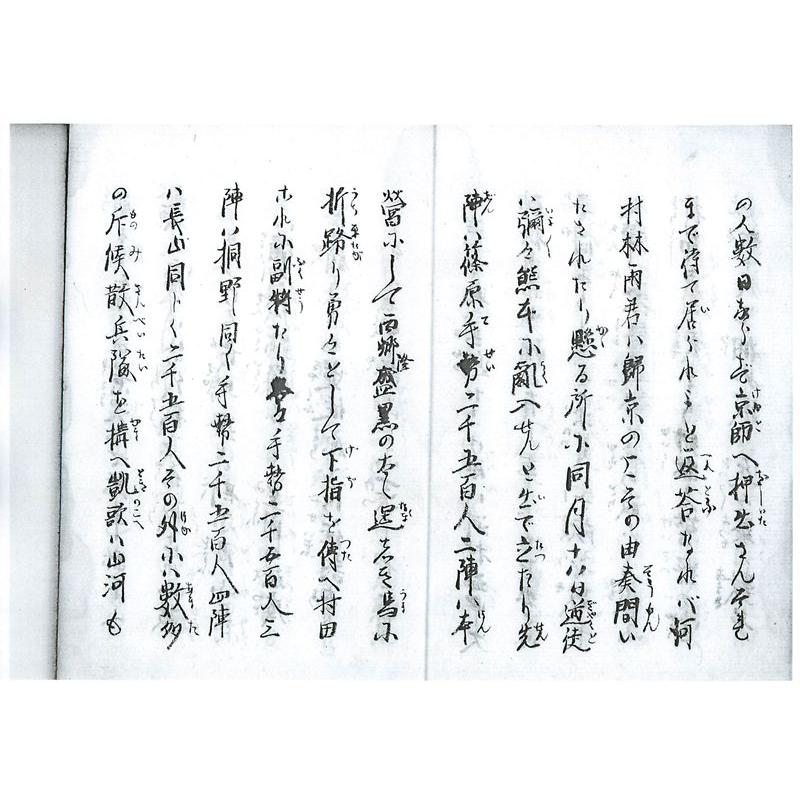 の人数日ならず京師へ押出さん夫
まで待て居られよと返答なれバ河
村林両君ハ歸京の上その由奏聞い
たされたり懸る所に同月十八日逆徒
ハ彌々熊本に亂入せんと出で立たり先
陣ハ篠原手勢二千五百人二陣ハ本
營にして西郷隆盛黒の太く逞しき馬に
打跨り勇々として下指を傳へ村田
これに副将たり手勢二千五百人三
陣ハ桐野同く手勢二千五百人四陣
ハ長山同じく二千五百人その外にハ數多
の斥候散兵隊を搆へ凱歌ハ山河も